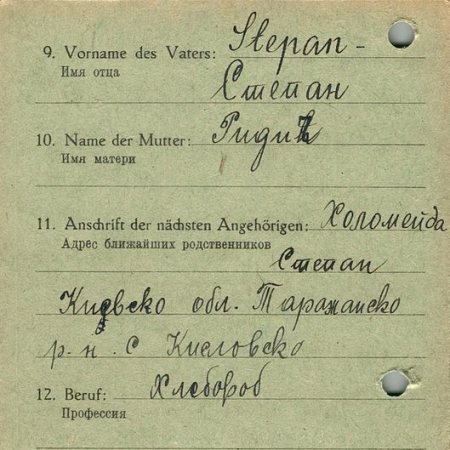 9. Vorname des Vaters: Stepan -
Имя отца
Степан
10. Name der Mutter:
Имя матери
11. Anschrift der nächsten Angehörigen: Холомейда
Адрес ближайших родственников
Степан
обл. Таращанско
р-н. с Кисловско
12. Beruf: Хлебороб
Профессия